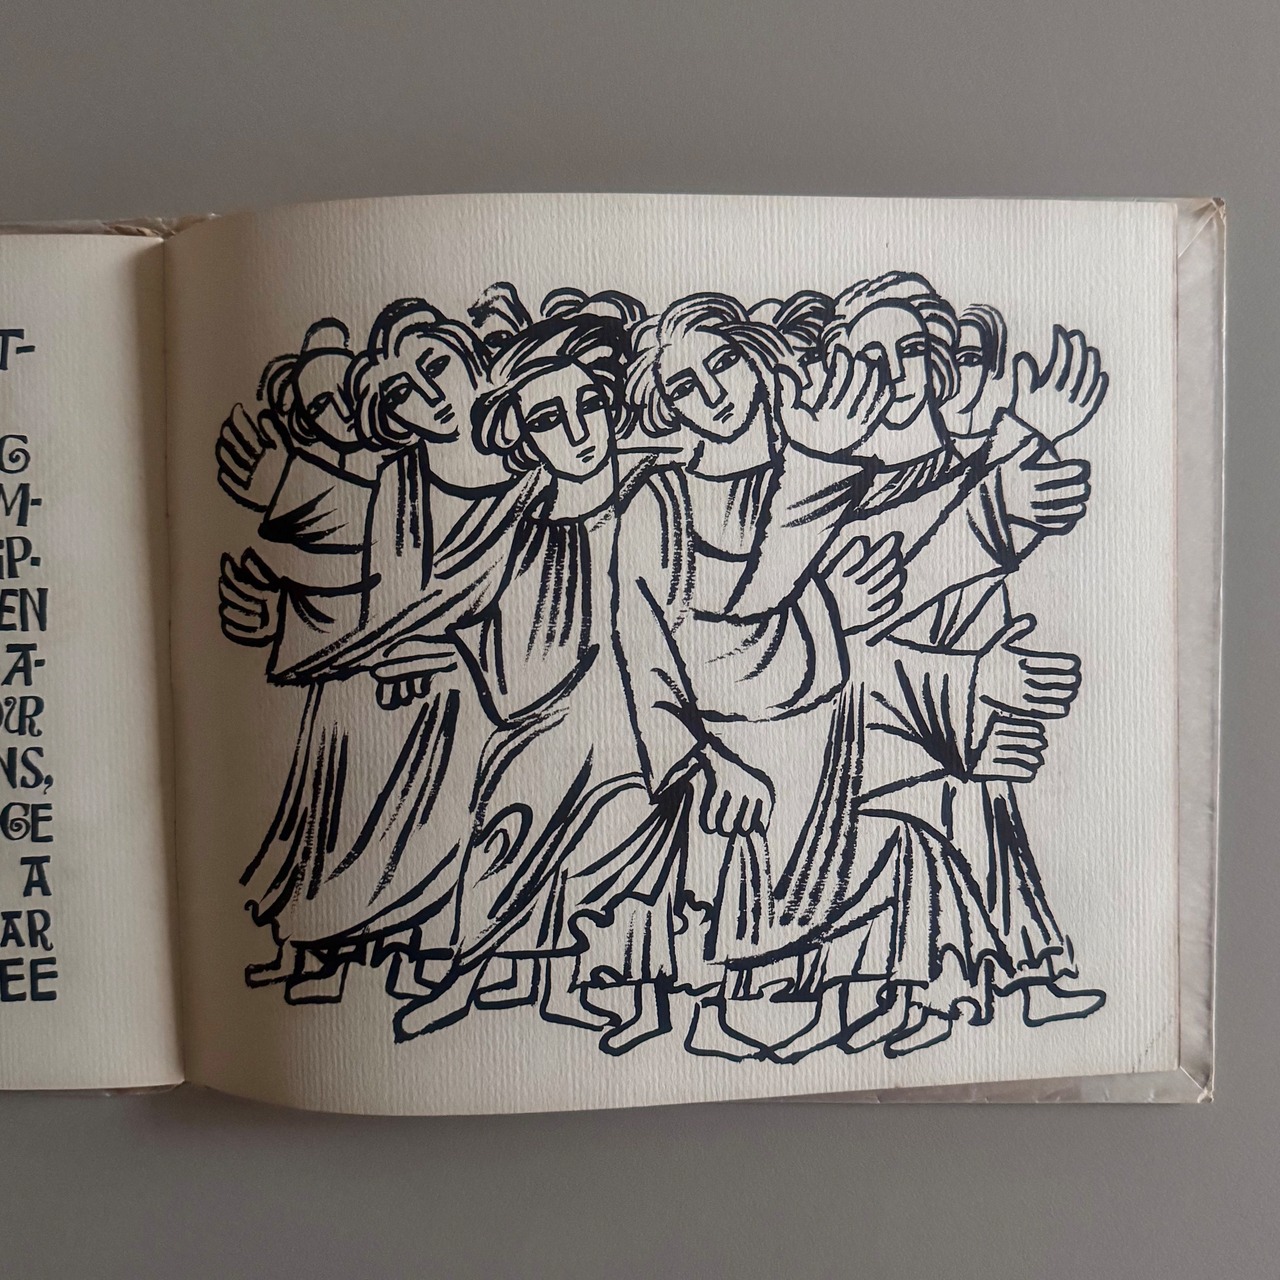 T-
G
M-
iP.
EN
A-
UR
NS,
GE
A
AR
EE